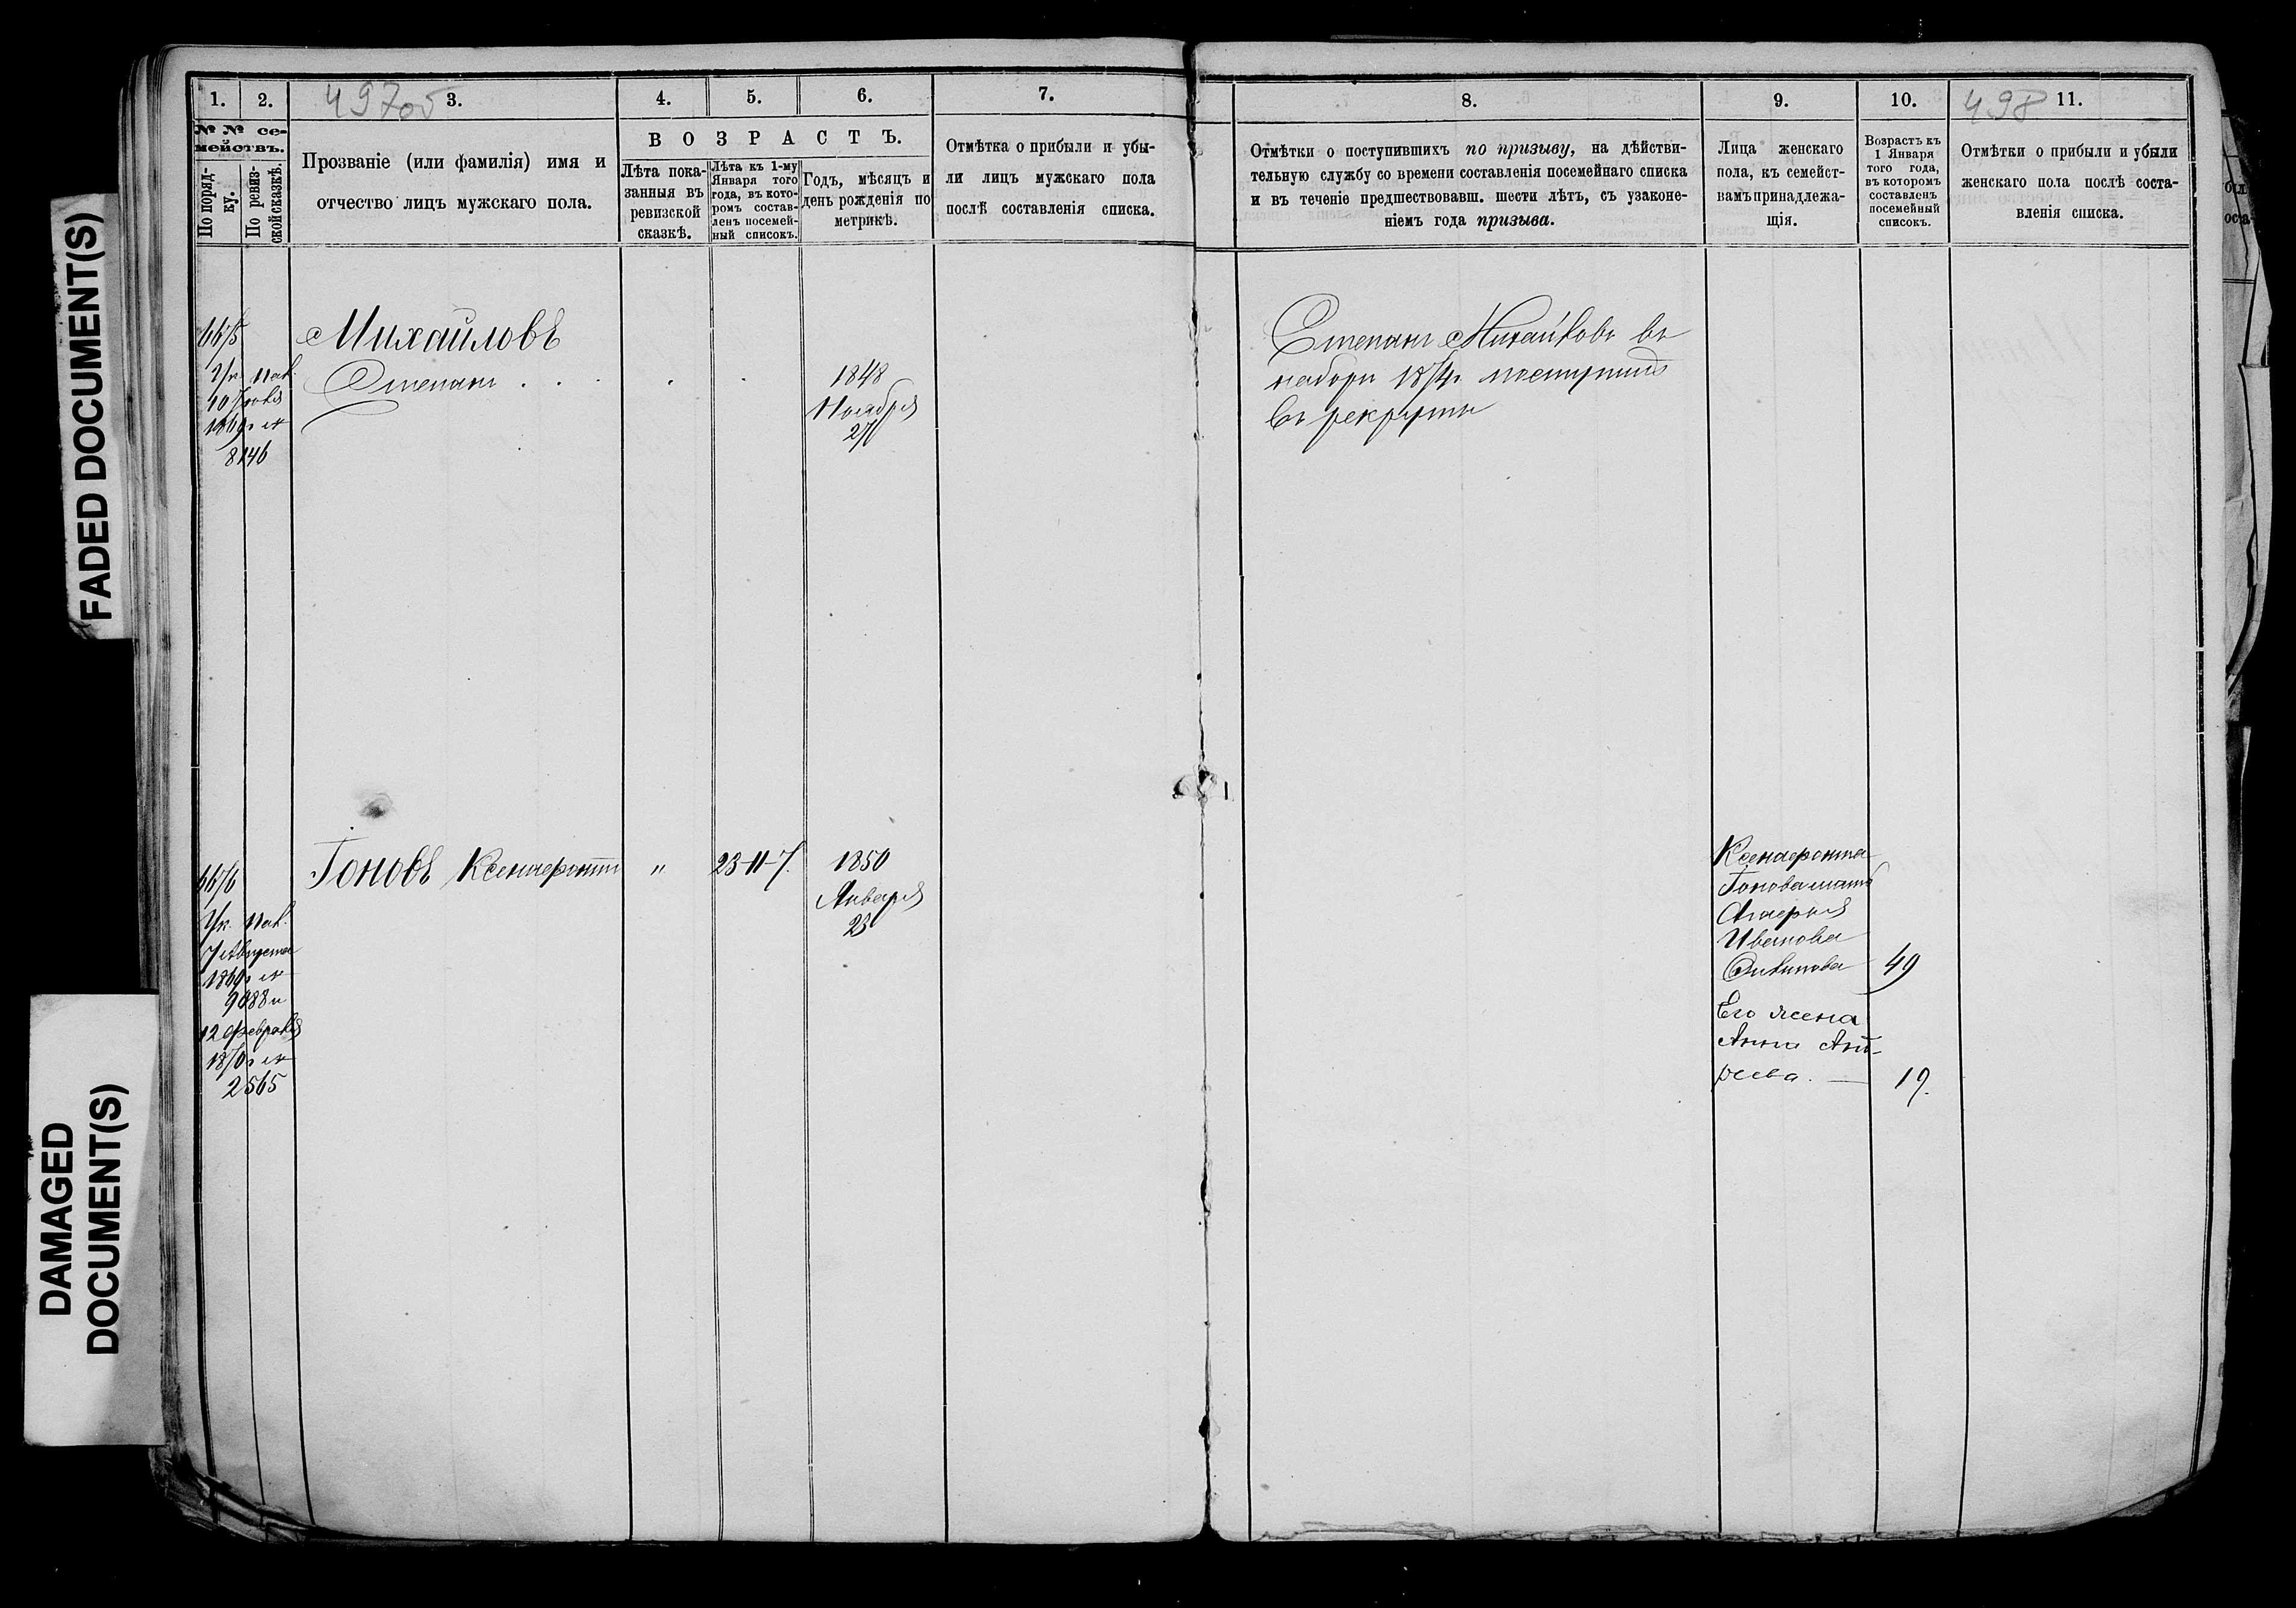 FADED DOCUMENT(S)
DAMAGED
DOCUMENT(S)
497об
1. 2. 3. 4. 5. 6. 7.
№ № се-
мействъ.
По поряд-
ку.
По ревиз-
ской сказкѣ.
Прозваніе (или фамилія) имя и
отчество лицъ мужскаго пола.
ВОЗРАСТЪ.
Лѣта пока-
занныя въ
ревизской
сказкѣ.
Лѣта къ 1-му
Января того
года, въ кото-
ромъ состав-
ленъ посемей-
ный списокъ.
Годъ, мѣсяцъ и
день рожденія по
метрикѣ.
Отмѣтка о прибыли и убы-
ли лицъ мужскаго пола
послѣ составленія списка.
6675
Ук. Пал.
1869 г №
8146
Михайловъ
Степанъ . . . . .
1848
Ноября
27
6676
Ук. Пал.
7 Августа
1869 г №
9088 и
12 Февраля
1870 г №
2565
Гоновъ Ксенофонтъ
"
23-11-7.
1850
Января
23
498
8. 9. 10. 11.
Отмѣтки о поступившихъ по призыву, на дѣйстви-
тельную службу со времени составленія посемейнаго списка
и въ теченіе предшествовавш. шести лѣтъ, съ узаконе-
ніемъ года призыва.
Лица женскаго
пола, къ семейст-
вамъ принадлежа-
щія.
Возрастъ къ
1 Января
того года,
въ которомъ
составленъ
посемейный
списокъ.
Отмѣтки о прибыли и убыли
женскаго пола послѣ соста-
вленія списка.
Степанъ Михайловъ въ
наборъ 1874 г. поступилъ
въ рекруты
Ксенофонта
Гонова мать
Ивановa
49
Его жена
Анна Анд-
реева. — 19.